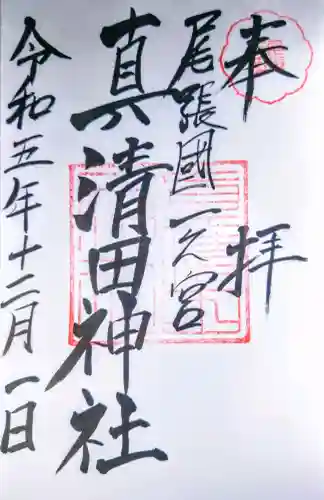 奉拝
尾張國一之宮
真清田神社
令和五年十二月一日